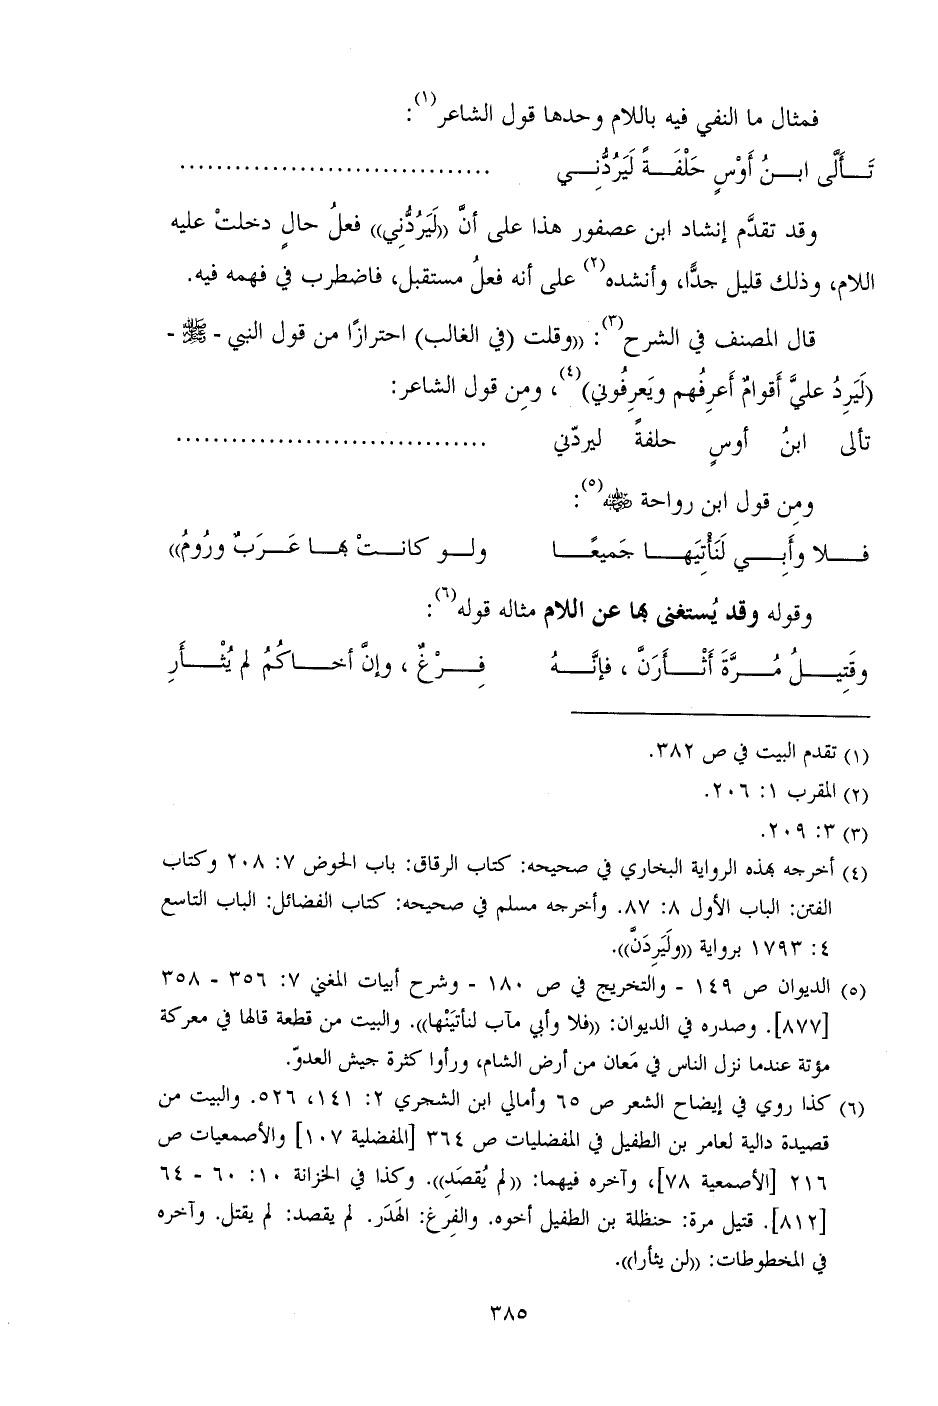 فمثال ما النفي فيه باللام وحدها قول الشاعر(١):
تَــأَلَّى ابــنُ أَوْسٍ حَلْفَــةً لَيَرُدُّنِــي ................................
وقد تقدَّم إنشاد ابن عصفور هذا على أنَّ ((لَيَرُدُّنِي)) فعلُ حالٍ دخلتْ عليه
اللام، وذلك قليل جدًّا، وأنشده(٢) على أنه فعلُ مستقبل، فاضطرب في فهمه فيه.
قال المصنف في الشرح(٣): ((وقلت (في الغالب) احترازًا من قول النبي - ﷺ -
(لَيَرِدُ عليَّ أَقوامٌ أَعرِفُهم ويَعرِفُوني)(٤)، ومِن قول الشاعر:
تألى ابنُ أوسٍ حلفةً ليردّني ................................
ومِن قول ابن رواحة ﵁(٥):
فــلا وأَبِــي لَنَأْتِيَهــا جَميعًــا ولــو كانــتْ بهــا عَــرَبٌ ورُومُ))
وقوله وقد يُستغنى بها عن اللام مثاله قوله(٦):
وقَتِيــلُ مُــرَّةَ أَثْــأَرَنَّ ، فإنَّــهُ فِــرْغٌ ، وإنَّ أخــاكُمُ لم يُثْــأَرِ
(١) تقدم البيت في ص ٣٨٢.
(٢) المقرب ١: ٢٠٦.
(٣) ٣: ٢٠٩.
(٤) أخرجه بهذه الرواية البخاري في صحيحه: كتاب الرقاق: باب الحوض ٧: ٢٠٨ وكتاب
الفتن: الباب الأول ٨: ٨٧. وأخرجه مسلم في صحيحه: كتاب الفضائل: الباب التاسع
٤: ١٧٩٣ برواية ((ولَيَرِدَنَّ)).
(٥) الديوان ص ١٤٩ - والتخريج في ص ١٨٠ - وشرح أبيات المغني ٧: ٣٥٦ - ٣٥٨
[٨٧٧]. وصدره في الديوان: ((فلا وأبي مآب لنأتيَنْها)). والبيت من قطعة قالها في معركة
مؤتة عندما نزل الناس في مَعان من أرض الشام، ورأوا كثرة جيش العدوّ.
(٦) كذا روي في إيضاح الشعر ص ٦٥ وأمالي ابن الشجري ٢: ١٤١، ٥٢٦. والبيت من
قصيدة دالية لعامر بن الطفيل في المفضليات ص ٣٦٤ [المفضلية ١٠٧] والأصمعيات ص
٢١٦ [الأصمعية ٧٨]، وآخره فيهما: ((لم يُقصَدِ)). وكذا في الخزانة ١٠: ٦٠ - ٦٤
[٨١٢]. قتيل مرة: حنظلة بن الطفيل أخوه. والفِرغ: الهَدَر. لم يقصد: لم يقتل. وآخره
في المخطوطات: ((لن يثأرا)).
٣٨٥